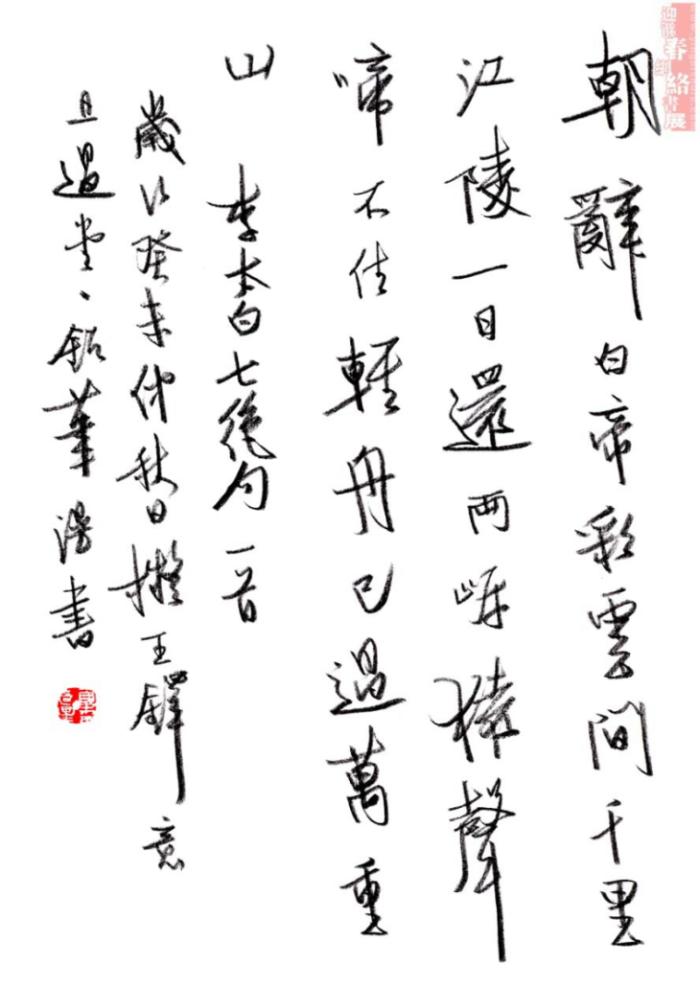 朝辭白帝彩雲間千里
江陵一日還兩岸猿聲
啼不住輕舟已過萬重
山 李太白七絕句一首
歲次癸未仲秋日擬王鐸意
且過堂、銘華漫書
春
絡
書展